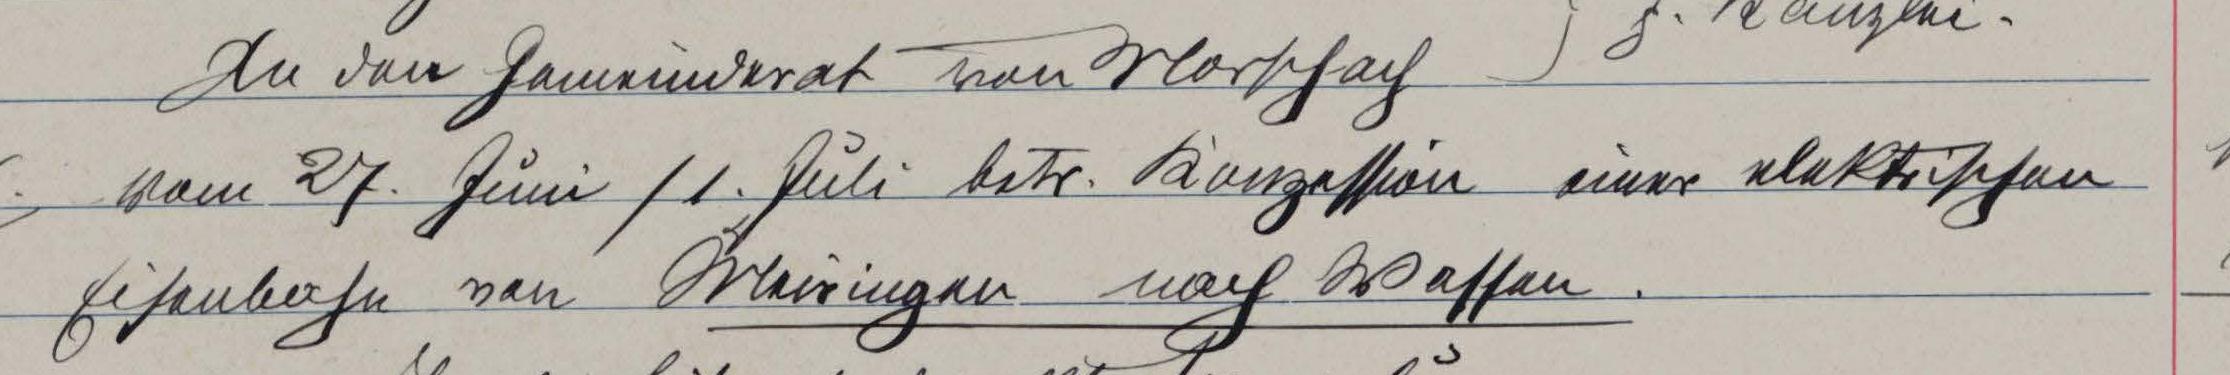 z. Kanzlei.
An den Gemeinderat von Morschach
vom 27. Juni / 1. Juli betr. Konzession einer elektrischen
Eisenbahn von Meiringen nach Wassen.